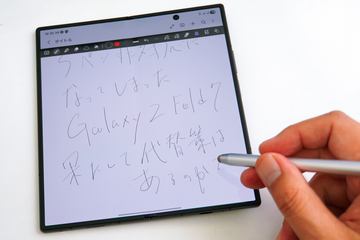 タイトル
Sペン非対応に
なってしまった
Galaxy Z Fold 7
果たして代替策は
あるのか?